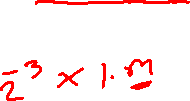 2̅³ × 1.m